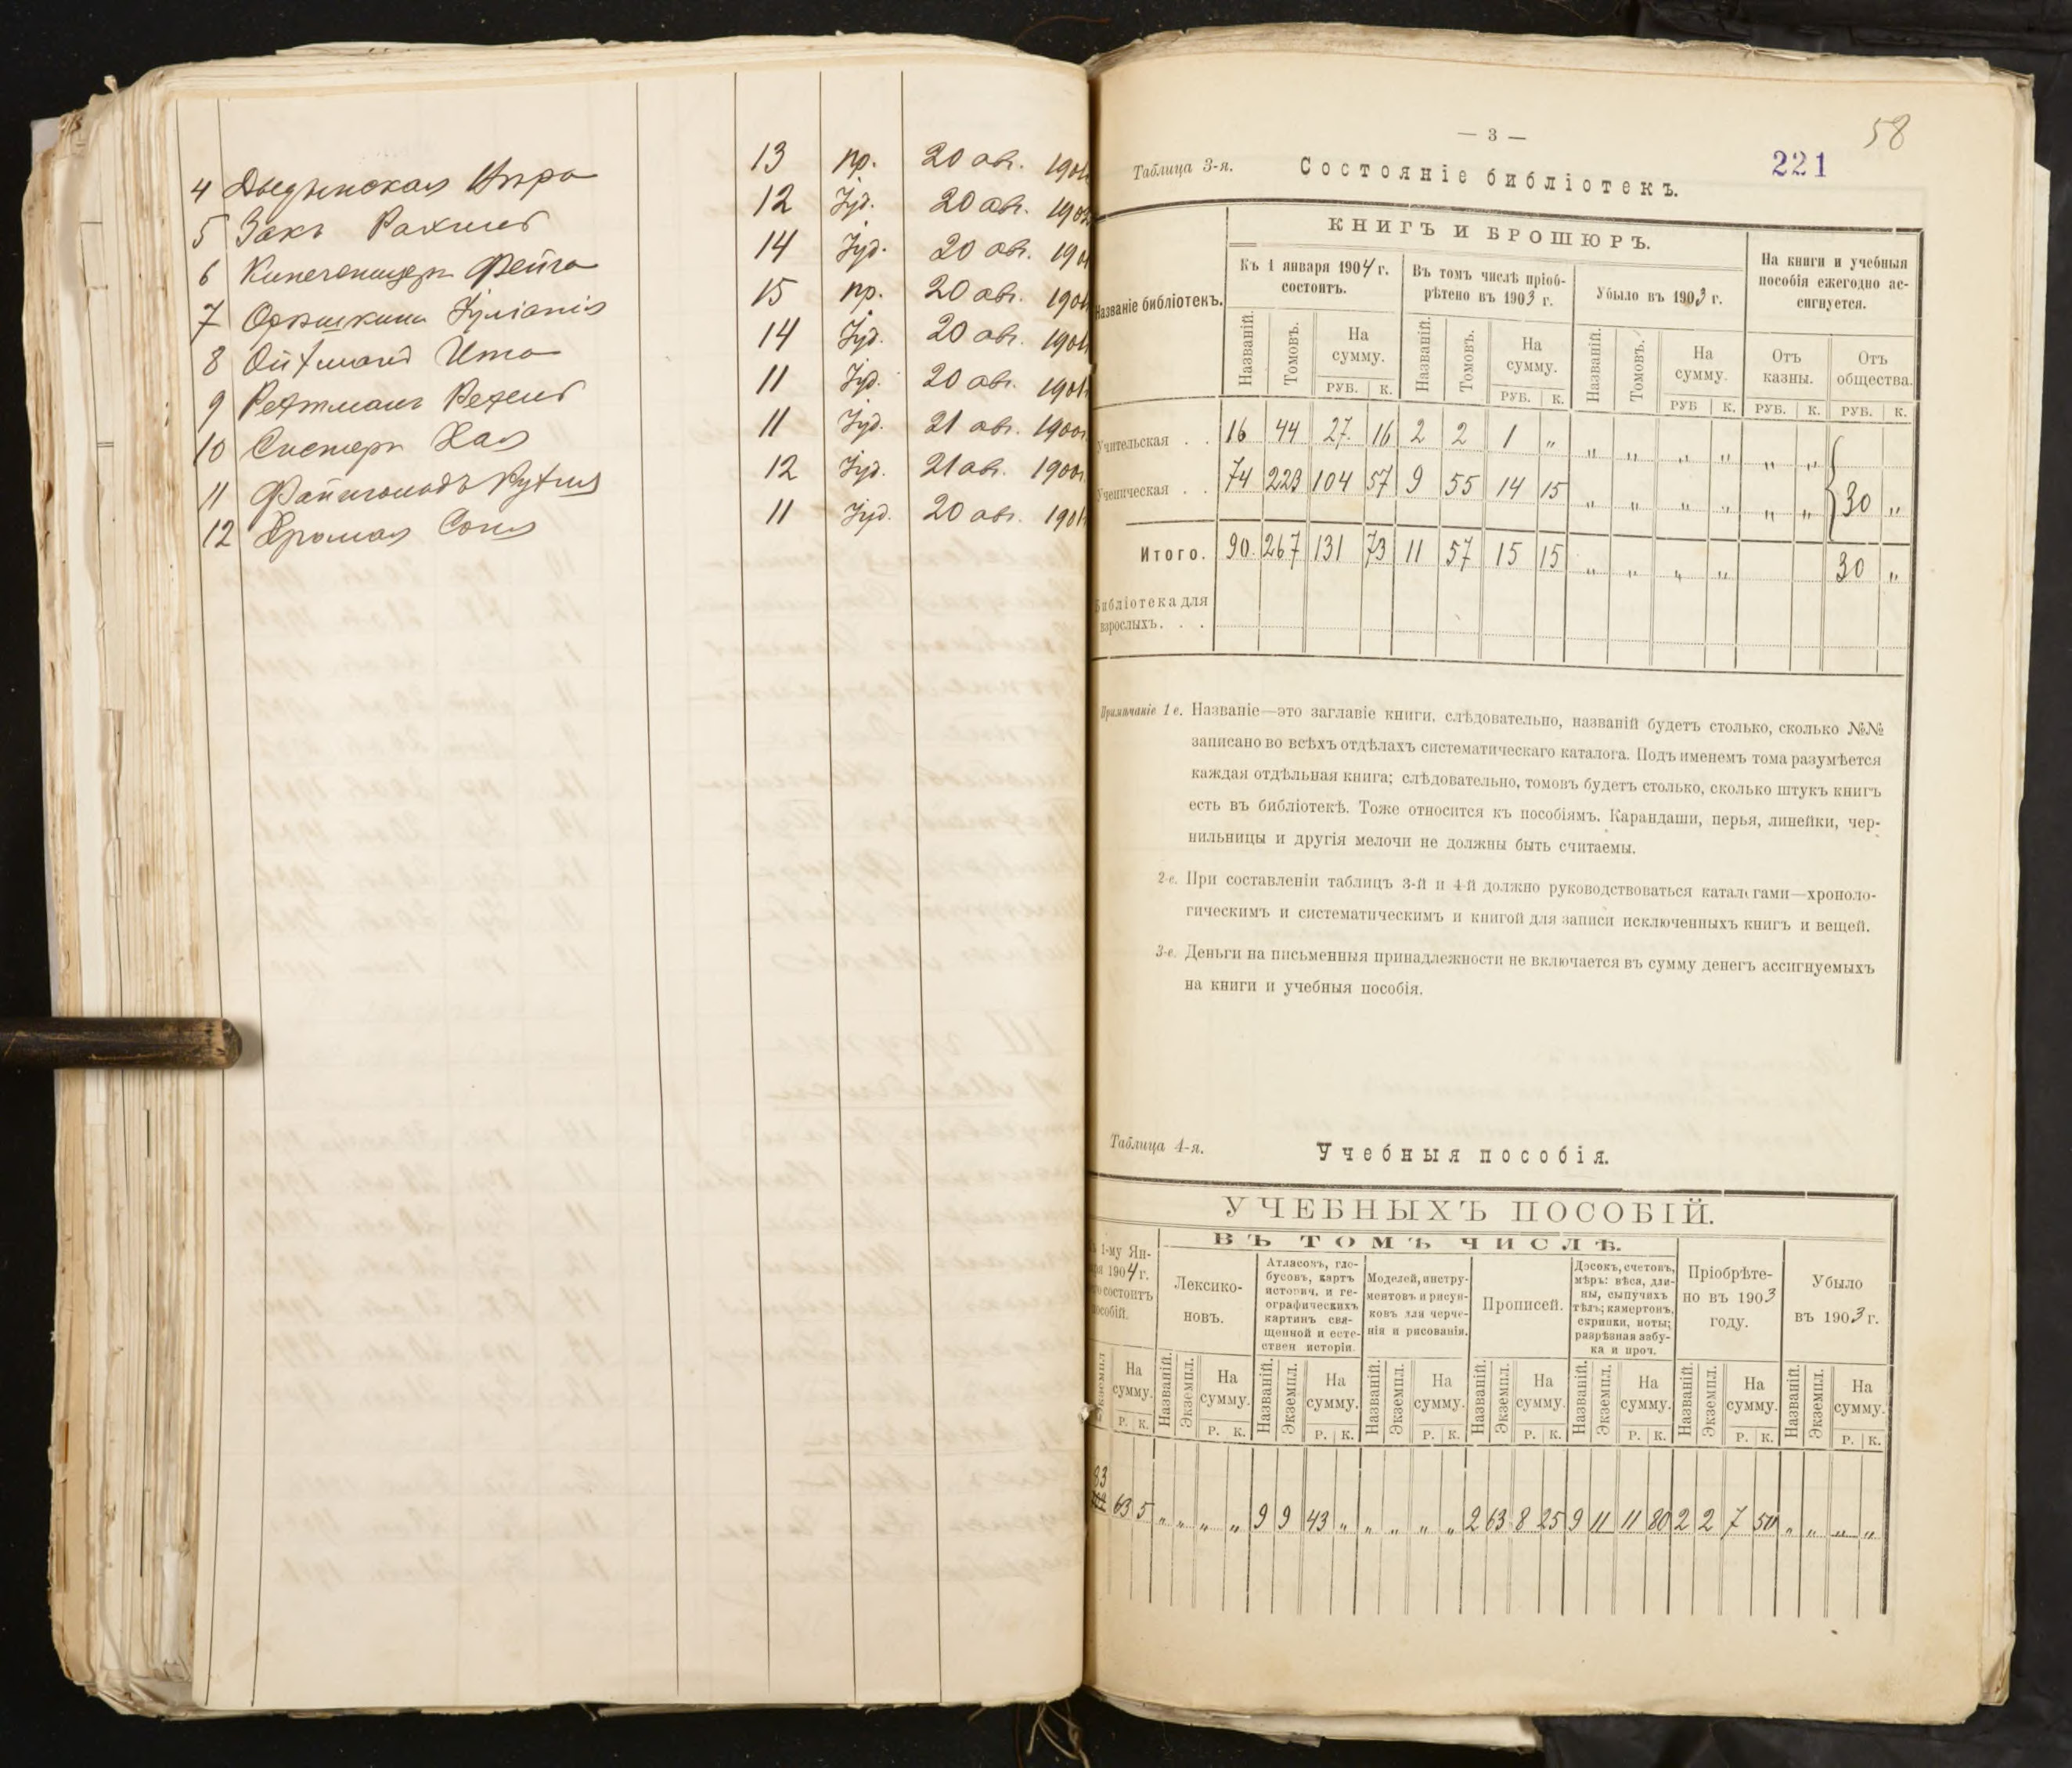 4 Дведынская Цира 13 пр. 20 авг. 190
5 Закъ Рахиль 12 Іуд. 20 авг. 190
6 Фейга 14 Іуд. 20 авг. 190
7 Іуліанія 15 пр. 20 авг. 190
8 Ита 14 Іуд. 20 авг. 190
9 11 Іуд. 20 авг. 190
10 Хая 11 Іуд. 21 авг. 1900
11 12 Іуд. 21 авг. 1900
12 Хромая Соня 11 Іуд. 20 авг. 190
58
— 3 —
221
Таблица 3-я. Состояніе библіотекъ.
КНИГЪ И БРОШЮРЪ.
Названіе библіотекъ.
Къ 1 января 1904 г. состоитъ.
Въ томъ числѣ пріоб-
рѣтено въ 1903 г.
Убыло въ 1903 г.
На книги и учебныя
пособія ежегодно ас-
сигнуется.
Названій. Томовъ. На сумму. Названій. Томовъ. На сумму. Названій. Томовъ. На сумму. Отъ казны. Отъ общества.
РУБ. К. РУБ. К. РУБ К. РУБ. К. РУБ. К.
Учительская . . 16 44 27 16 2 2 1 „ „ „ „ „ „ „
Ученическая . . 74 223 104 57 9 55 14 15 „ „ „ „ „ „ 30 „
Итого. 90 267 131 73 11 57 15 15 „ „ „ „ 30 „
Библіотека для
взрослыхъ. . .
Примѣчаніе 1 е. Названіе—это заглавіе книги, слѣдовательно, названій будетъ столько, сколько №№
записано во всѣхъ отдѣлахъ систематическаго каталога. Подъ именемъ тома разумѣется
каждая отдѣльная книга; слѣдовательно, томовъ будетъ столько, сколько штукъ книгъ
есть въ библіотекѣ. Тоже относится къ пособіямъ. Карандаши, перья, линейки, чер-
нильницы и другія мелочи не должны быть считаемы.
2-е. При составленіи таблицъ 3-й и 4-й должно руководствоваться каталогами—хроноло-
гическимъ и систематическимъ и книгой для записи исключенныхъ книгъ и вещей.
3-е. Деньги на письменныя принадлежности не включается въ сумму денегъ ассигнуемыхъ
на книги и учебныя пособія.
Таблица 4-я. Учебныя пособія.
УЧЕБНЫХЪ ПОСОБІЙ.
ВЪ ТОМЪ ЧИСЛѢ.
1-му Ян-
1904 г.
состоитъ
пособій.
Лексико-
новъ.
Атласовъ, гло-
бусовъ, картъ
историч. и ге-
ографическихъ
картинъ свя-
щенной и есте-
ствен исторіи.
Моделей, инстру-
ментовъ и рисун-
ковъ для черче-
нія и рисованія.
Прописей.
Досокъ, счетовъ,
мѣръ: вѣса, дли-
ны, сыпучихъ
тѣлъ; камертонъ,
скрипки, ноты;
разрѣзная азбу-
ка и проч.
Пріобрѣте-
но въ 1903
году.
Убыло
въ 1903 г.
Экземпл На сумму. Названій. Экземпл. На сумму. Названій. Экземпл. На сумму. Названій. Экземпл. На сумму. Названій. Экземпл. На сумму. Названій. Экземпл. На сумму. Названій. Экземпл. На сумму. Названій. Экземпл. На сумму.
Р. К. Р. К. Р. К. Р. К. Р. К. Р. К. Р. К. Р. К.
83
63 5 „ „ „ „ 9 9 43 „ „ „ „ „ 2 63 8 25 9 11 11 80 2 2 7 50 „ „ „ „